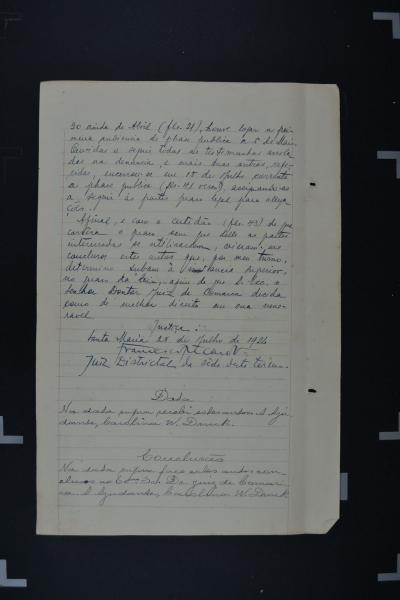 30 ainda de Abril (fls. 21), houve logar a pri-
meira audiencia de phase publica a 5 de Maio.
Ouvidas a seguir todas as testemunhas arrola-
das na denúncia e mais duas outras, refe-
ridas, encerrou-se em 15 de Julho corrente
a phase publica (fls. 41 verso), assignando-se
a seguir ás partes prazo legal para allega-
ções.
Afinal, e com a certidão (fls. 43) de que
correra o prazo sem que delle as partes
interessadas se utilizassem, vieram-me
conclusos estes autos que, por meu turno,
determino subam á Instancia superior,
no prazo da lei, afim de que S. Exc. o
Senhor Doutor Juiz de Comarca decida
como de melhor direito em sua vene-
ravel
Justiça:
Santa Maria 28 de Julho de 1924
Francisco
Juiz Districtal da séde deste termo.
Data
Na data supra recebi estes autos. A Aju-
dante, Carolina W. Dauck.
Conclusão
Na data supra faço estes autos con-
clusos ao Ex. Snr. Dr. Juiz da Comar-
ca. A Ajudante, Carolina W. Dauck